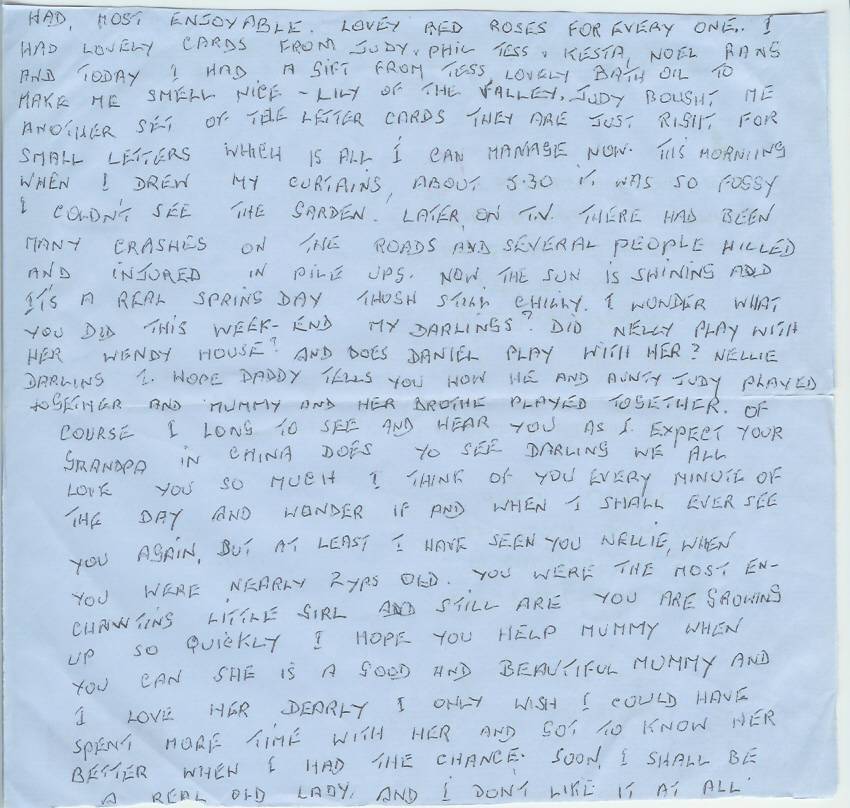 HAD, MOST ENJOYABLE. LOVEY RED ROSES FOR EVERY ONE.. I
HAD LOVELY CARDS FROM JUDY, PHIL TESS & KESTA, NOEL RANG
AND TODAY I HAD A GIFT FROM TESS, LOVELY BATH OIL TO
MAKE ME SMELL NICE - LILY OF THE VALLEY. JUDY BOUGHT ME
ANOTHER SET OF THE LETTER CARDS THEY ARE JUST RIGHT FOR
SMALL LETTERS WHICH IS ALL I CAN MANAGE NOW. THIS MORNIING
WHEN I DREW MY CURTAINS, ABOUT 5.30 IT WAS SO FOGGY
I COLDN'T SEE THE GARDEN. LATER, ON T.V. THERE HAD BEEN
MANY CRASHES ON THE ROADS AND SEVERAL PEOPLE KILLED
AND INJURED IN PILE UPS. NOW THE SUN IS SHINING AND
ITS A REAL SPRING DAY THOGH STILL CHILLY. I WONDER WHAT
YOU DID THIS WEEK-END MY DARLINGS? DID NELLY PLAY WITH
HER WENDY HOUSE? AND DOES DANIEL PLAY WITH HER? NELLIE
DARLING I. HOPE DADDY TELLS YOU HOW HE AND AUNTY JUDY PLAYED
TOGETHER AND MUMMY AND HER BROTHE PLAYED TOGETHER. OF
COURSE I LONG TO SEE AND HEAR YOU AS I EXPECT YOUR
GRANDPA IN CHINA DOES YO SEE DARLING WE ALL
LOVE YOU SO MUCH I THINK OF YOU EVERY MINUTE OF
THE DAY AND WONDER IF AND WHEN I SHALL EVER SEE
YOU AGAIN, BUT AT LEAST I HAVE SEEN YOU NELLIE, WHEN
YOU WERE NEARLY 2 YRS OLD. YOU WERE THE MOST EN-
CHANTING LITTLE GIRL AND STILL ARE YOU ARE GROWING
UP SO QUICKLY I HOPE YOU HELP MUMMY WHEN
YOU CAN SHE IS A GOOD AND BEAUTIFUL MUMMY AND
I LOVE HER DEARLY I ONLY WISH I COULD HAVE
SPENT MORE TIME WITH HER AND GOT TO KNOW HER
BETTER WHEN I HAD THE CHANCE. SOON, I SHALL BE
A REAL OLD LADY. AND I DON'T LIKE IT AT ALL.